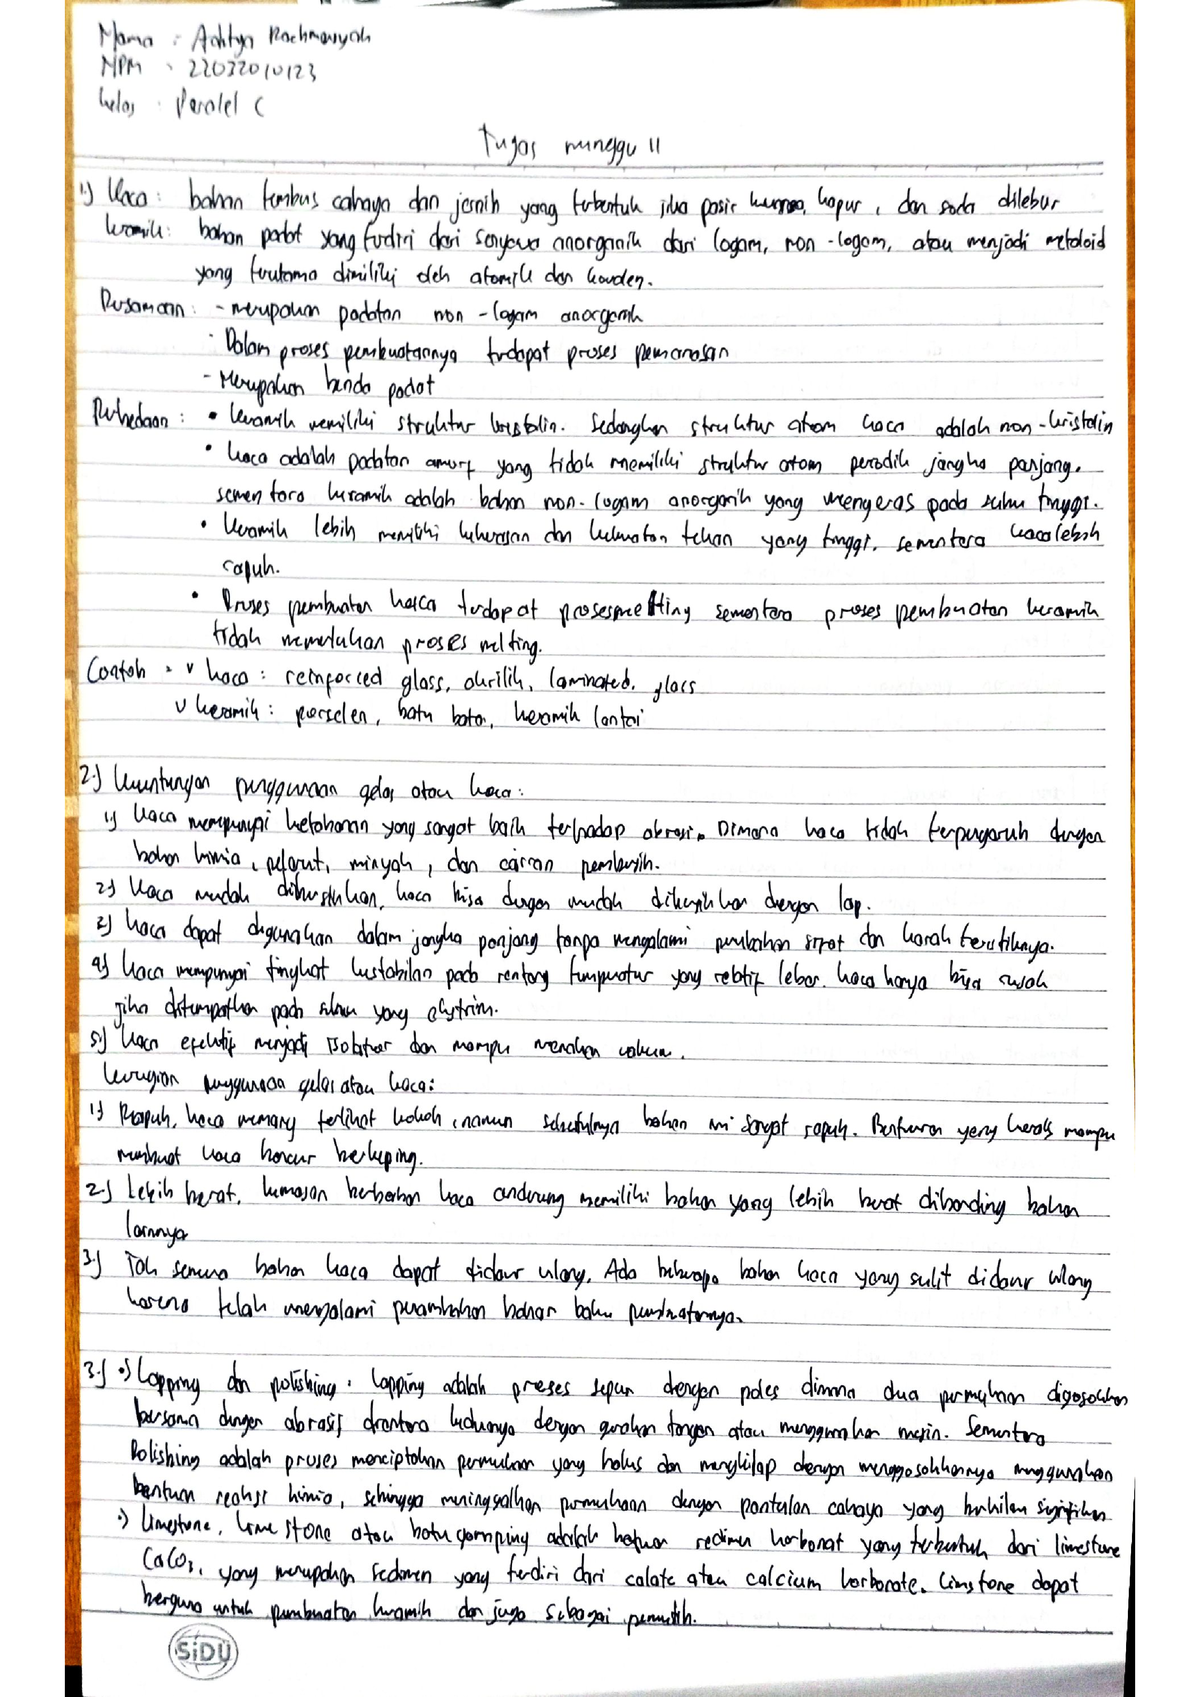 Nama : Aditya Rachmansyah
NPM : 22032010123
Kelas : Paralel C
Tugas minggu 11
1.) Kaca : bahan tembus cahaya dan jernih yang terbentuk jika pasir kuarsa, kapur, dan soda dilebur
keramik : bahan padat yang terdiri dari senyawa anorganik dari logam, non-logam, atau menjadi metaloid
yang terutama dimiliki oleh atomik dan kovalen.
Persamaan : - merupakan padatan non-logam anorganik
- Dalam proses pembuatannya terdapat proses pemanasan
- Merupakan benda padat
Perbedaan : • keramik memiliki struktur kristalin. Sedangkan struktur atom kaca adalah non-kristalin
• kaca adalah padatan amorf yang tidak memiliki struktur atom periodik jangka panjang.
sementara keramik adalah bahan non-logam anorganik yang mengeras pada suhu tinggi.
• keramik lebih memiliki kekerasan dan kekuatan tekan yang tinggi, sementara kaca lebih
rapuh.
• Proses pembuatan kaca terdapat proses melting sementara proses pembuatan keramik
tidak memerlukan proses melting.
Contoh : v kaca : reinforced glass, akrilik, laminated, glass
v keramik : porselen, batu bata, keramik lantai
2.) keuntungan penggunaan gelas atau kaca :
1) kaca mempunyai ketahanan yang sangat baik terhadap abrasi. Dimana kaca tidak terpengaruh dengan
bahan kimia, pelarut, minyak, dan cairan pembersih.
2) kaca mudah dibersihkan, kaca bisa dengan mudah dibersihkan dengan lap.
3) kaca dapat digunakan dalam jangka panjang tanpa mengalami perubahan sifat dan
4) kaca mempunyai tingkat kestabilan pada rentang temperatur yang relatif lebar. kaca hanya bisa rusak
jika ditempatkan pada suhu yang ekstrim.
5) kaca efektif menjadi isolator dan mampu menahan vakum.
kerugian penggunaan gelas atau kaca :
1) Rapuh, kaca memang terlihat kokoh, namun sebetulnya bahan ini sangat rapuh. Benturan yang keras mampu
membuat kaca hancur berkeping.
2.) Lebih berat, kemasan berbahan kaca cenderung memiliki bahan yang lebih berat dibanding bahan
lainnya
3.) Tak semua bahan kaca dapat didaur ulang. Ada beberapa bahan kaca yang sulit didaur ulang
karena telah mengalami penambahan bahan baku pembuatannya.
3.) •) Lapping dan polishing. Lapping adalah proses seperti dengan poles dimana dua permukaan digosokkan
bersama dengan abrasif diantara keduanya dengan gerakan tangan atau menggunakan mesin. Sementara
Polishing adalah proses menciptakan permukaan yang halus dan mengkilap dengan menggosokkannya menggunakan
bantuan reaksi kimia, sehingga meninggalkan permukaan dengan pantulan cahaya yang signifikan
•) Limestone, Limestone atau batu gamping adalah batuan sedimen karbonat yang terbentuk dari limestone
CaCO3, yang merupakan sedimen yang terdiri dari calcite atau calcium karbonate. Limstone dapat
berguna untuk pembuatan keramik dan juga sebagai pemutih.
SiDU